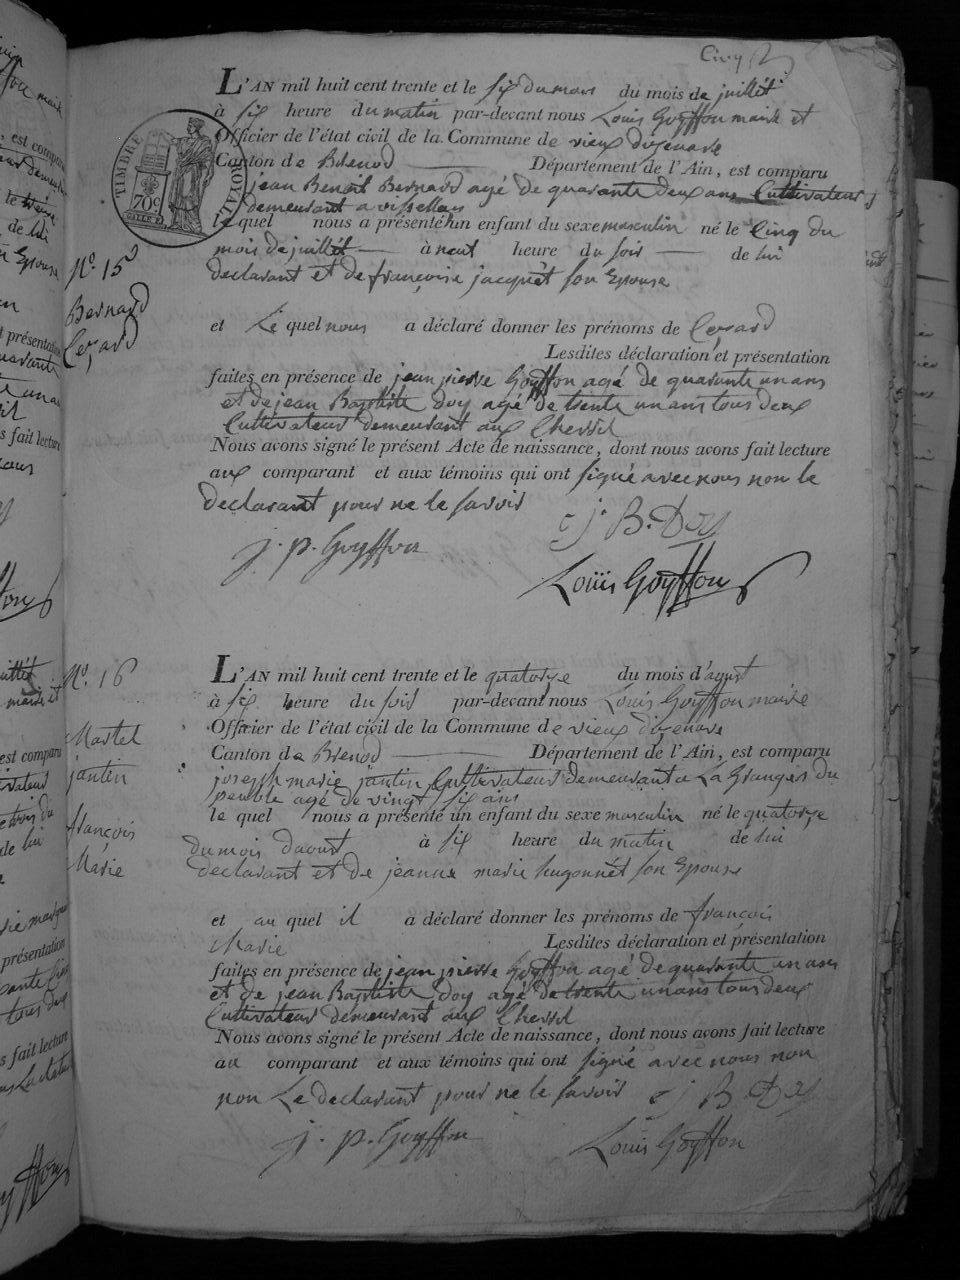 Cinq
L'AN mil huit cent trente et le six du mois du mois de juillét
à six heure du matin par-devant nous Louis Goyffon maire et
Officier de l'état civil de la Commune de vieux d'izenave
Canton de Brénod Département de l'Ain, est comparu
jean Benoit Bernard agé de quarante deux ans Cultivateur
demeurant a
le quel nous a présenté un enfant du sexe masculin né le Cinq du
mois de juillét à neuf heure du soir de lui
declarant et de françoise jacquét son Epouse
et Le quel nous a déclaré donner les prénoms de Cezard
Lesdites déclaration et présentation
faites en présence de jean pierre Goyffon agé de quarante un ans
et de jean Baptiste doy agé de trente un ans tous deux
Cultivateur demeurant aux Chevril
Nous avons signé le présent Acte de naissance, dont nous avons fait lecture
aux comparant et aux témoins qui ont signé avec nous non le
declarant pour ne le savoir
j. B. Doy
j. p. Goyffon
Louis Goyffon
TIMBRE ROYAL
70c
N.° 15
Bernard
Cezard
L'AN mil huit cent trente et le quatorze du mois d'agust
à six heure du soir par-devant nous Louis Goyffon maire
Officier de l'état civil de la Commune de vieux d'izenave
Canton de Brenod Département de l'Ain, est comparu
joseph marie jantin Cultivateur demeurant a La Granges du
peuble agé de vingt six ans
le quel nous a présenté un enfant du sexe masculin né le quatorze
du mois d'aout à six heure du matin de lui
declarant et de jeanne marie hugonnét son Epouse
et au quel il a déclaré donner les prénoms de françois
Marie Lesdites déclaration et présentation
faites en présence de jean pierre Goyffon agé de quarante un ans
et de jean Baptiste doy agé de trente un ans tous deux
Cultivateur demeurant aux Chevril
Nous avons signé le présent Acte de naissance, dont nous avons fait lecture
au comparant et aux témoins qui ont signé avec nous non
non Le declarant pour ne le savoir j B. Doy
j. p. Goyffon Louis Goyffon
N.° 16
Martel
jantin
françois
Marie